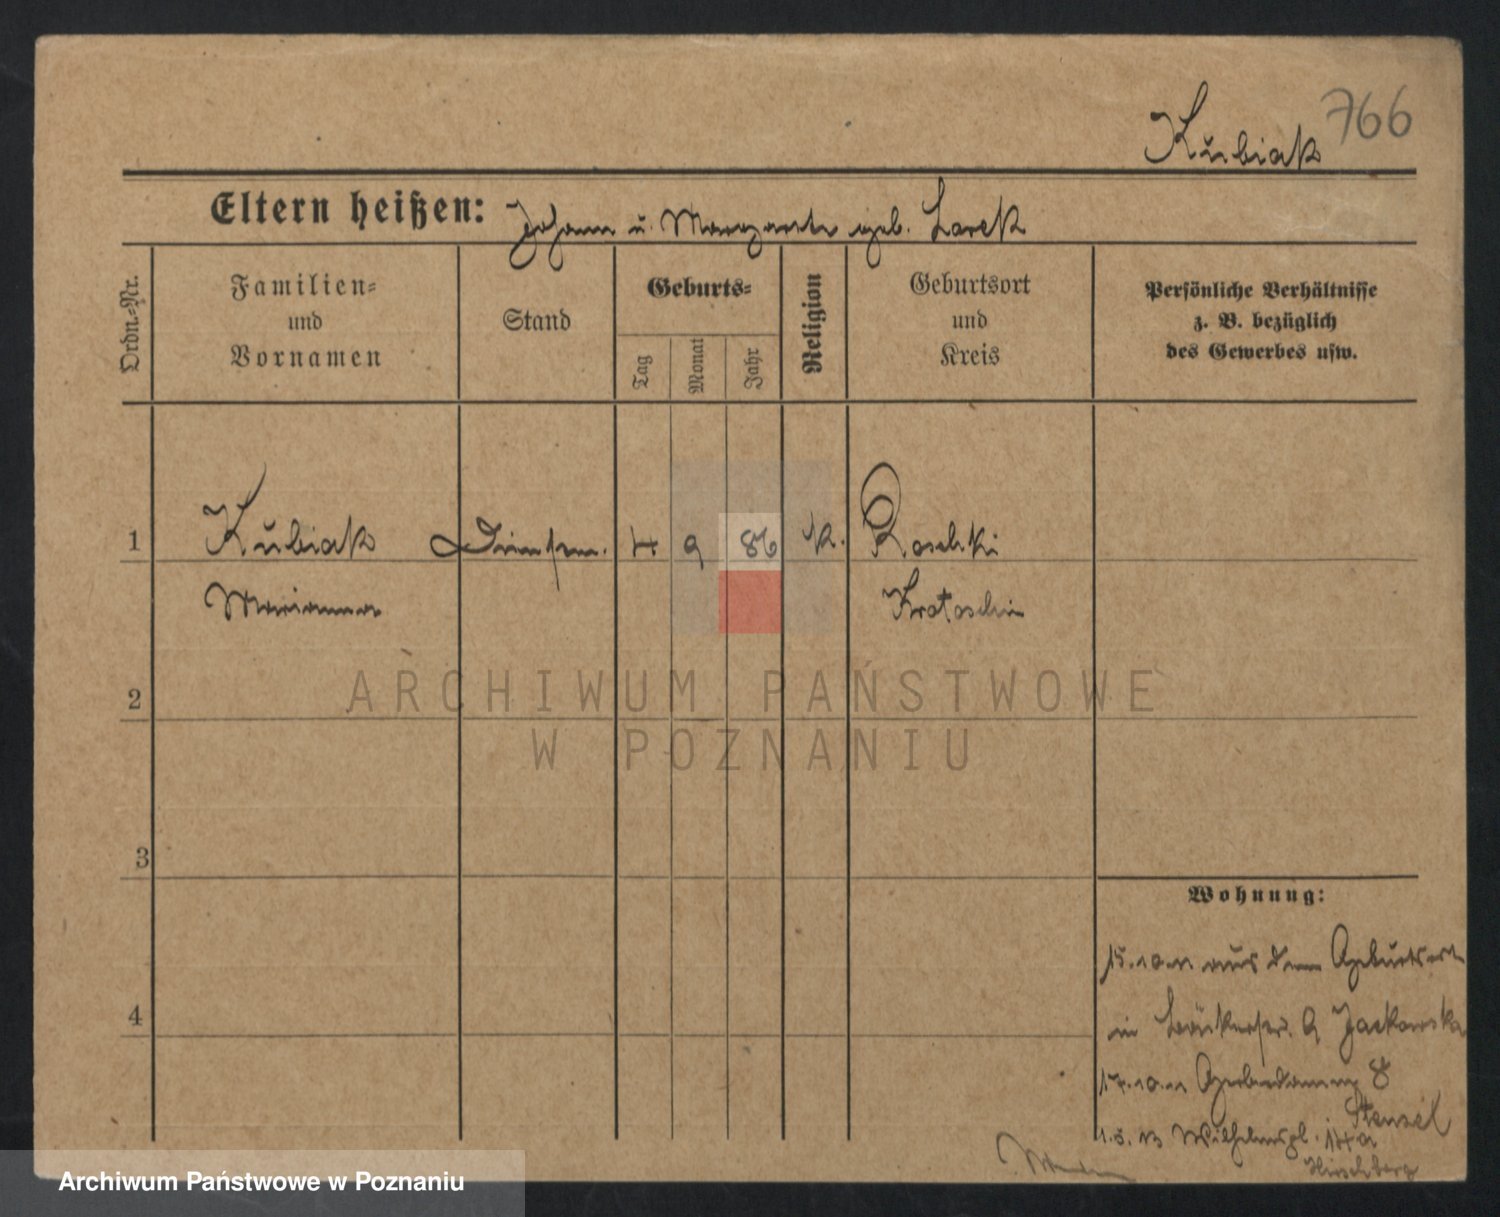 766
Kubiak
Eltern heißen: Johann u. Margarete geb. Larek
Ordn.-Nr.
Familien-
und
Vornamen
Stand
Geburts-
Tag
Monat
Jahr
Religion
Geburtsort
und
Kreis
Persönliche Verhältnisse
z. B. bezüglich
des Gewerbes usw.
1
Kubiak
4 9 86 K. Roschki
Marianna
Krotoschin
2
3
4
Wohnung:
15.10.11 aus dem Geburtsort
in 9 Jackowska
17.10.11 Gerberdamm 8
Stenzel
1.5.13 Wilhelmspl. 14a
Hirschberg
ARCHIWUM PAŃSTWOWE
W POZNANIU
Archiwum Państwowe w Poznaniu